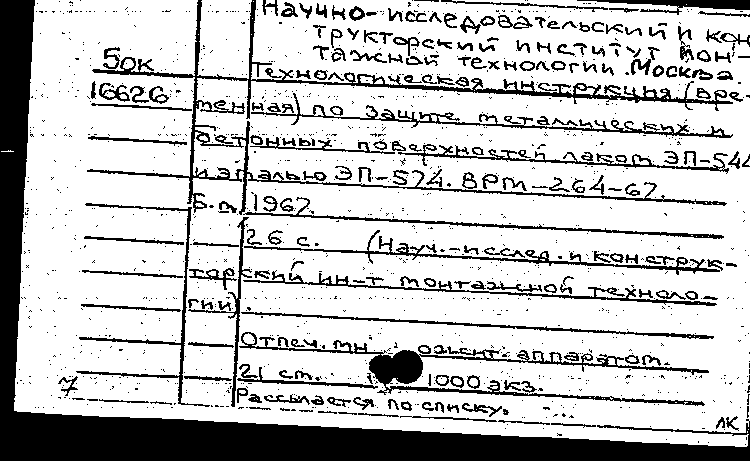 Научно-исследовательский и конс
трукторский институт мон-
тажной технологии. Москва.
50к
Технологическая инструкция (вре-
16626
менная) по защите металлических и
бетонных поверхностей лаком ЭП-544
и эмалью ЭП-574. ВРМ-264-67.
Б.м., 1967.
26 с. (Науч.-исслед. и конструк-
торский ин-т монтажной техноло-
гии).
Отпеч. аппаратом.
21 см. 1000 экз.
Рассылается по списку.
7
ЛК